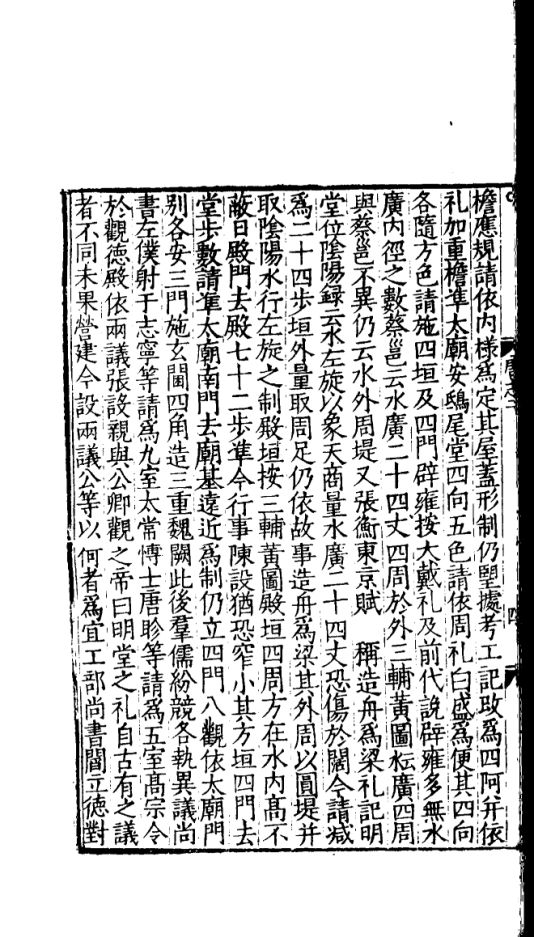 檐應規請依内様爲定其屋蓋形制仍望據考工記攺爲四阿并依
礼加重檐準太廟安鴟尾堂四向五色請依周礼白盛爲便其四向
各隨方色請施四垣及四門辟雍按大戴礼及前代說辟雍多無水
廣内徑之數蔡邕云水廣二十四丈四周於外三輔黄圖云水廣四周
與蔡邕不異仍云水外周堤又張衡東京賦 稱造舟爲梁礼記明
堂位陰陽録云水左旋以象天商量水廣二十四丈恐傷於闊今請减
爲二十四步垣外量取周足仍依故事造舟爲梁其外周以圓堤并
取陰陽水行左旋之制殿垣按三輔黄圖殿垣四周方在水内髙不
蔽日殿門去殿七十二步準今行事陳設猶恐窄小其方垣四門去
堂步數請準太廟南門去廟基遠近爲制仍立四門八觀依太廟門
别各安三門施玄閫四角造三重魏闕此後羣儒紛競各執異議尚
書左僕射于志寧等請爲九室太常愽士唐昣等請爲五室髙宗令
於觀徳殿依兩議張設親與公卿觀之帝曰明堂之礼自古有之議
者不同未果營建今設兩議公等以何者爲宜工部尚書閻立徳對